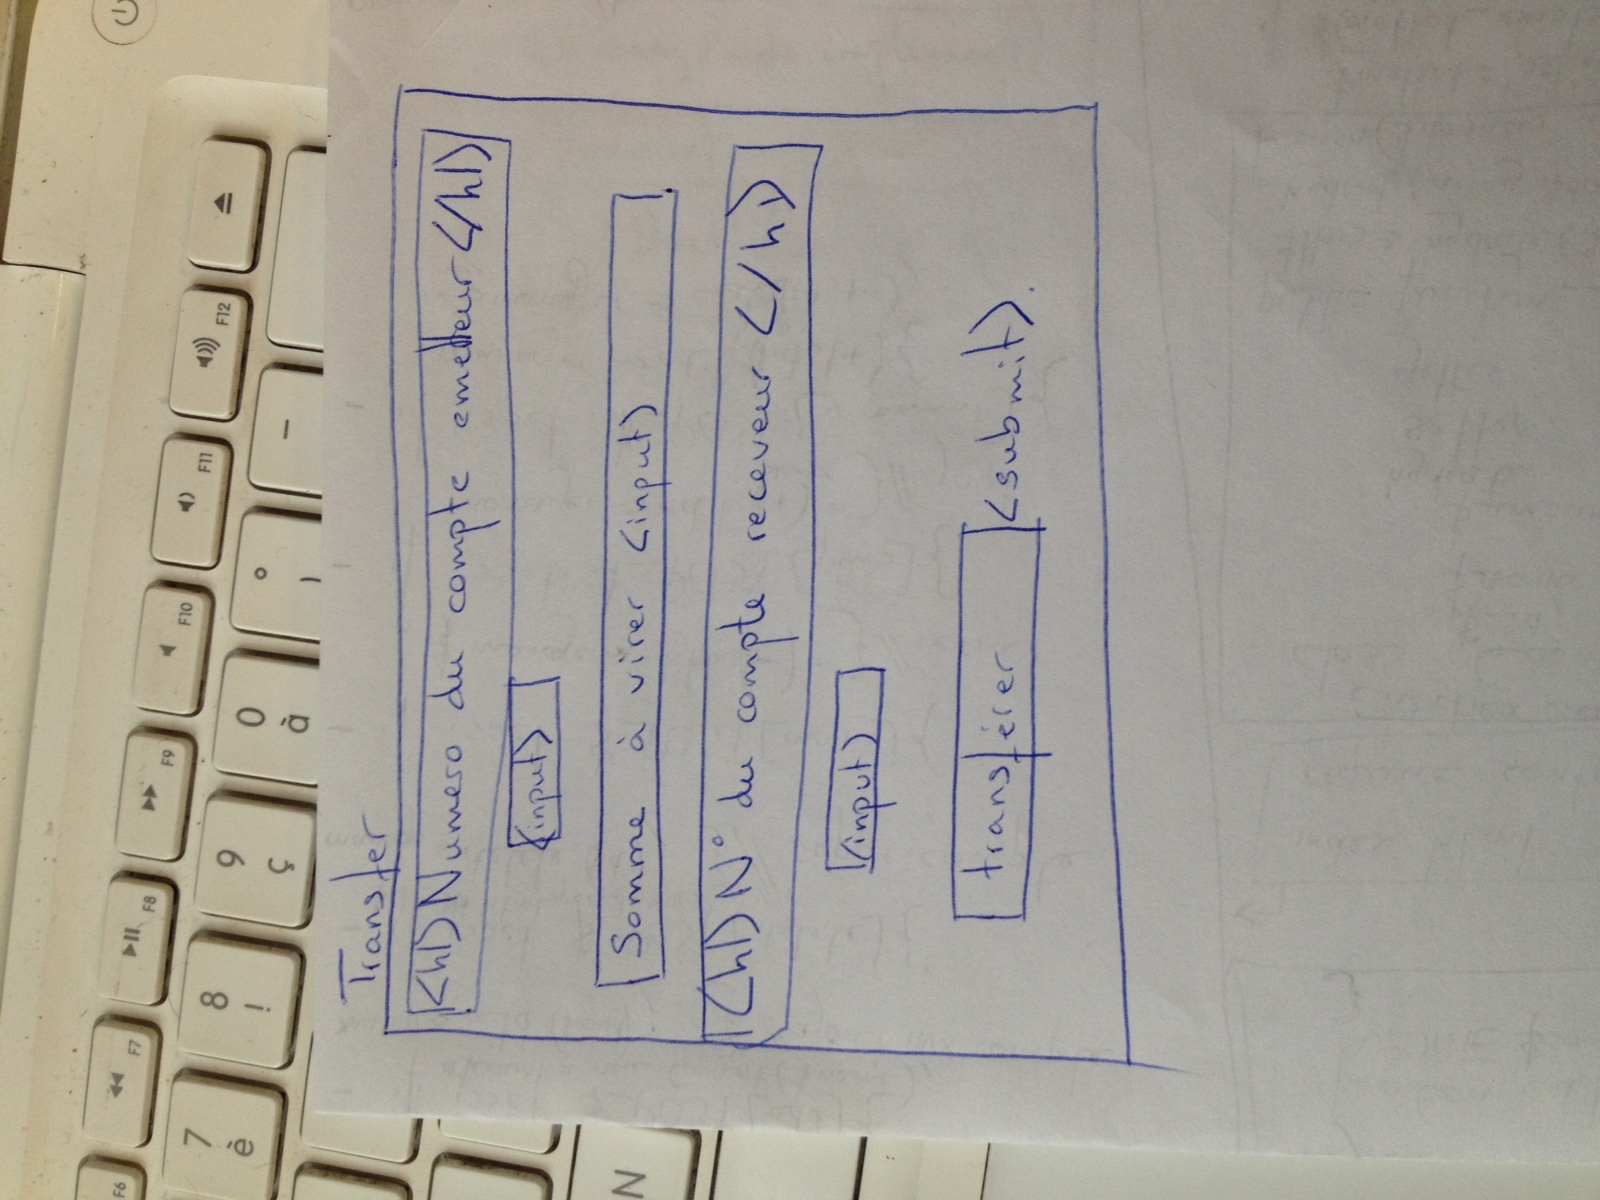 F6 F7 F8 F9 F10 F11 F12
7 8 9 0 °
è ! ç à ) -
N
Transfer
<h1> Numero du compte emetteur </h1>
<input>
Somme à virer <input>
<h1> N° du compte receveur </h1>
<input>
transférer <submit>.